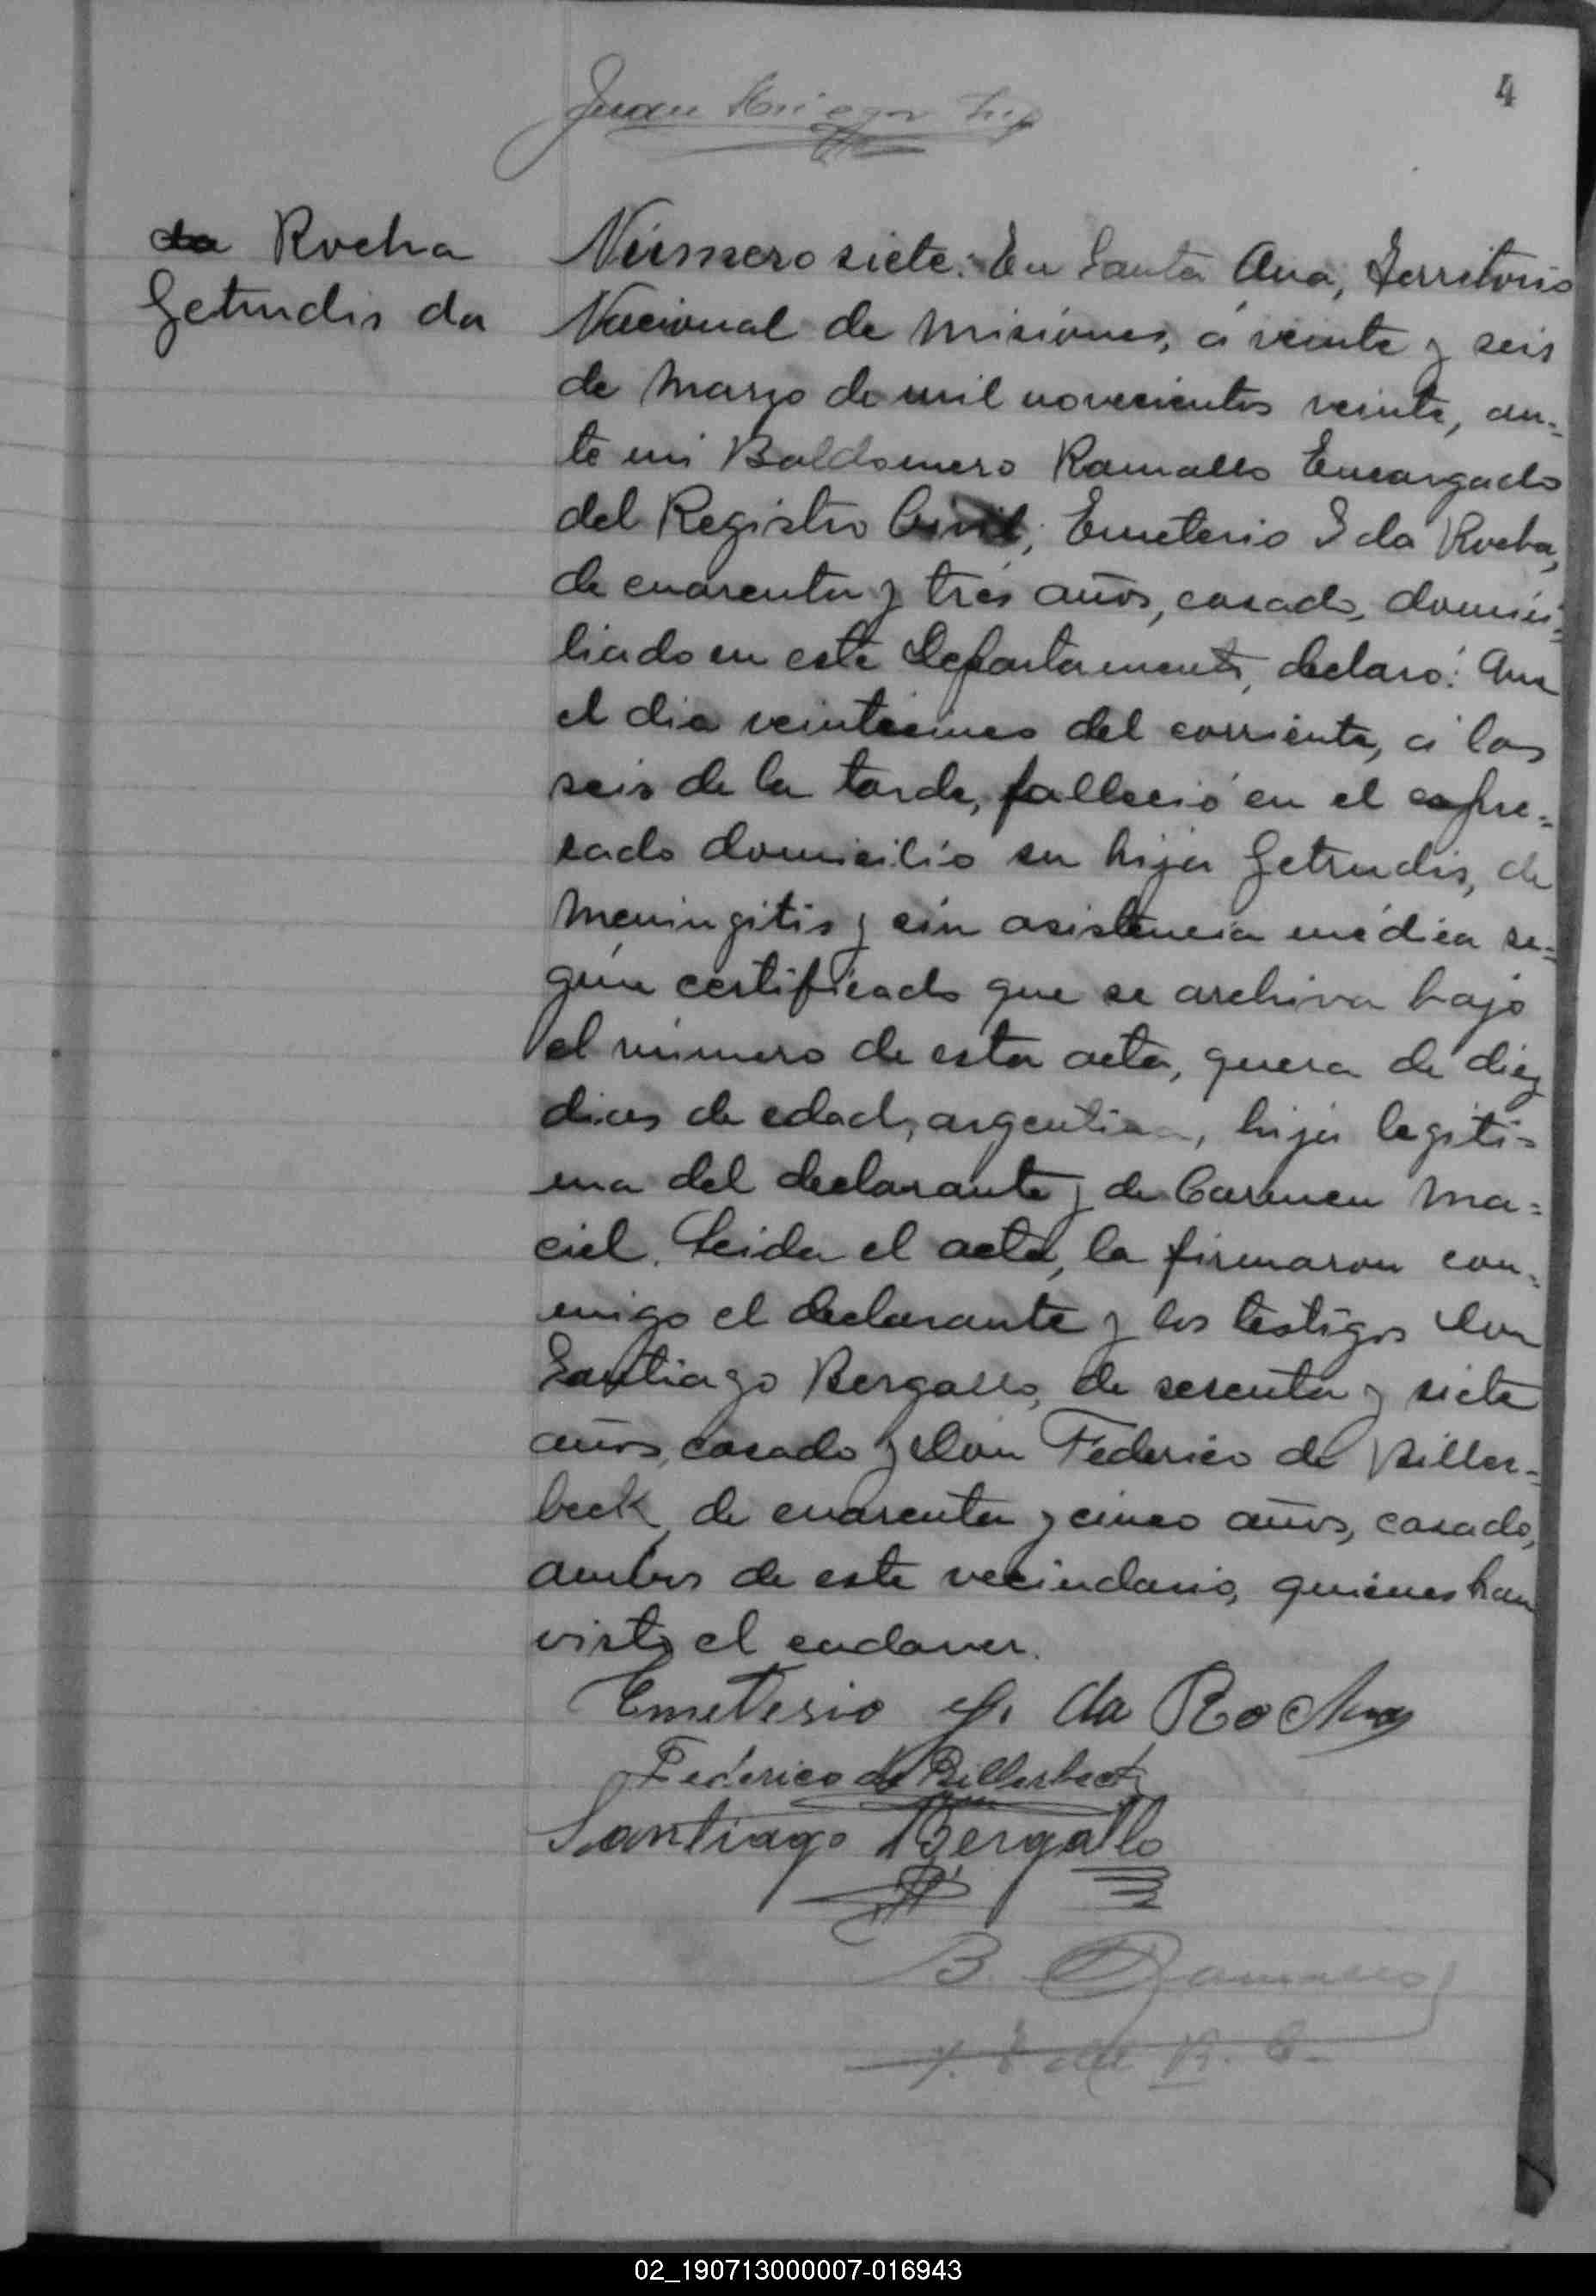 4
Juan
da Rocha
Getrudis da
Número siete: En Santa Ana, Territorio
Nacional de Misiones, á veinte y seis
de Marzo de mil novecientos veinte, an=
te mi Baldomero Ramallo Encargado
del Registro Civil; Emeterio S da Rocha,
de cuarenta y tres años, casado, domici=
liado en este Departamento, declaró: Que
el dia veinticinco del corriente, á las
seis de la tarde, falleció en el expre=
sado domicilio su hija Getrudis, de
Meningitis y sin asistencia médica se=
gún certificado que se archiva bajo
el número de esta acta, quera de diez
dias de edad, argentina, hija legiti=
ma del declarante y de Carmen Ma=
ciel. Leida el acta, la firmaron con=
migo el declarante y los testigos Don
Santiago Bergallo, de sesenta y siete
años, casado y Don Federico de Biller=
beck, de cuarenta y cinco años, casado,
ambos de este vecindario, quienes han
visto el cadaver.
Emeterio S. da Rocha
Federico de Billerbeck
Santiago Bergallo
B. Ramallo
E del R. C.
02_190713000007-016943